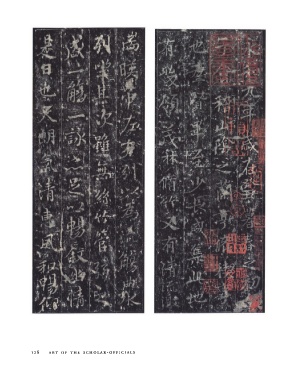 永和九年歲在癸丑暮春之初會
于會稽山陰之蘭亭脩禊事
也群賢畢至少長咸集此地
有峻領茂林脩竹又有清流激
湍暎帶左右引以為流觴曲水
列坐其次雖無絲竹管弦之
盛一觴一詠亦足以暢敘幽情
是日也天朗氣清惠風和暢仰
126 ART OF THE SCHOLAR-OFFICIALS